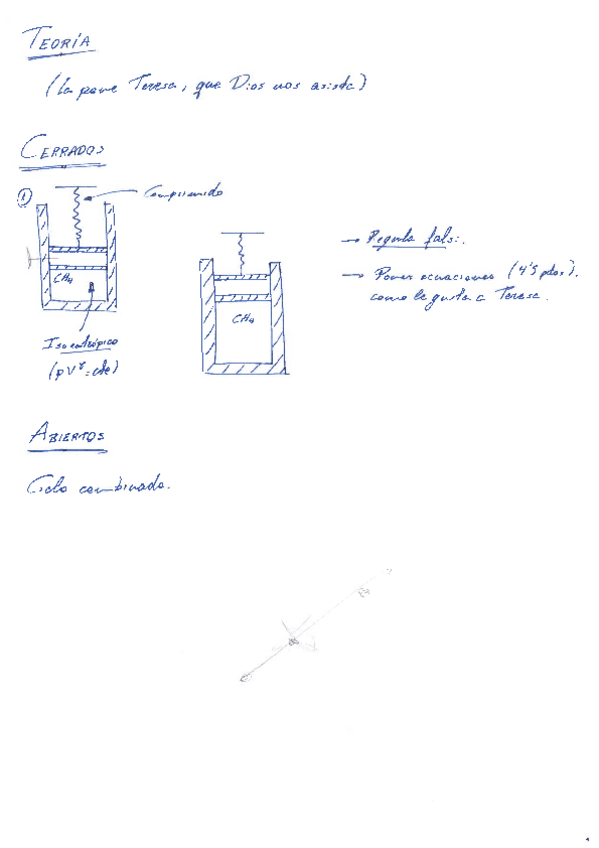 TEORÍA
(La pone Teresa, que Dios nos asista)
CERRADOS
① Comprimido
CH4
Isoentrópico
(pVγ=cte)
CH4
→ Regula falsi.
→ Poner ecuaciones (4'5 ptos).
como le gusta a Teresa.
ABIERTOS
Ciclo combinado.